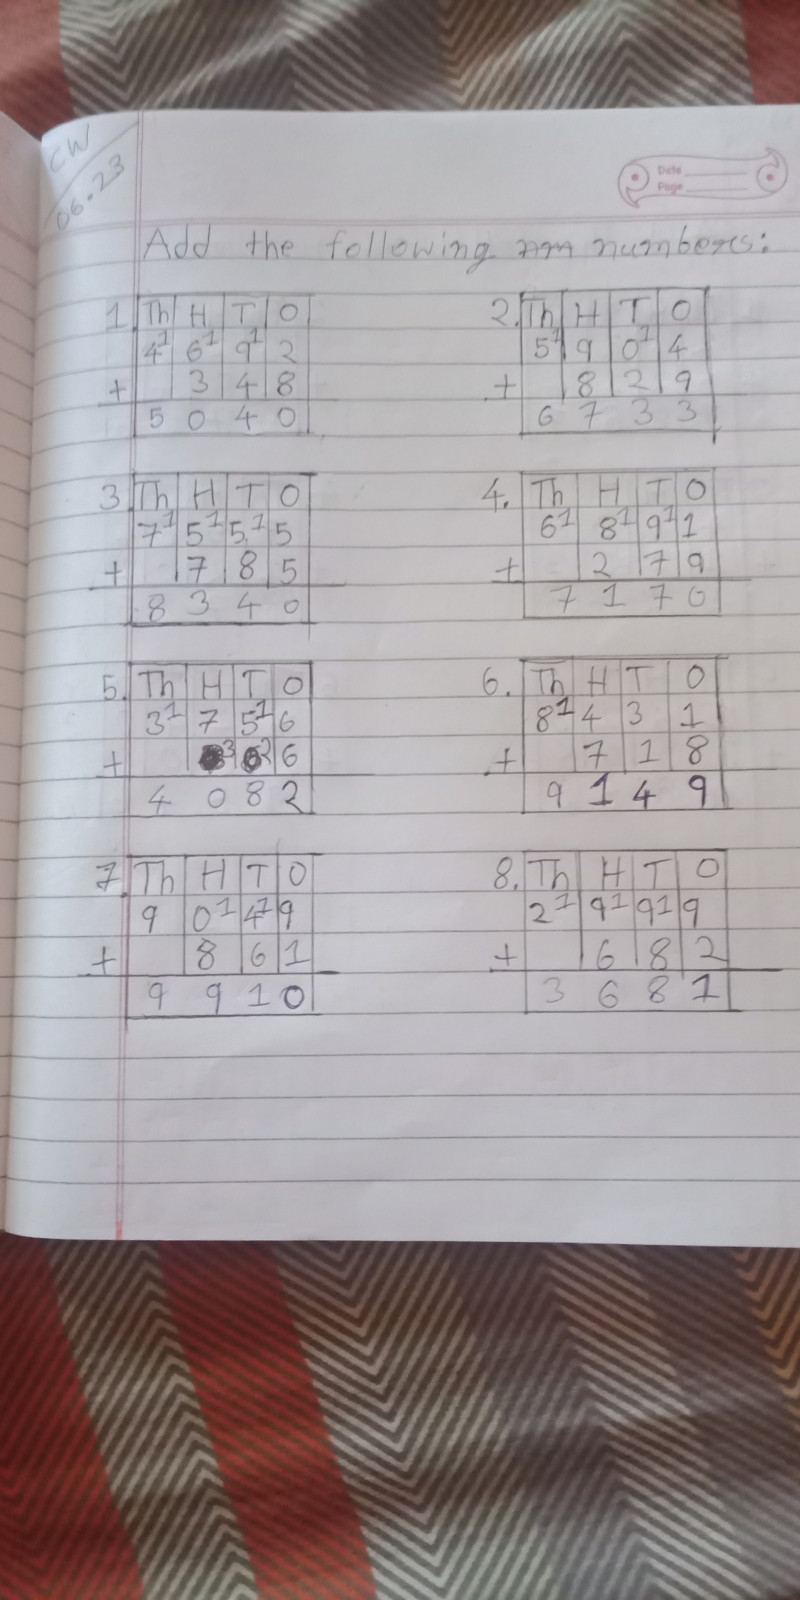 CW
06.23
Date
Page
Add the following numbers:
1. Th H T O
4¹ 6¹ 9¹ 2
+ 3 4 8
5 0 4 0
2. Th H T O
5¹ 9 0¹ 4
+ 8 2 9
6 7 3 3
3 Th H T O
7¹ 5¹ 5¹ 5
+ 7 8 5
8 3 4 0
4. Th H T O
6¹ 8¹ 9¹ 1
+ 2 7 9
7 1 7 0
5. Th H T O
3¹ 7 5¹ 6
+ 3 2 6
4 0 8 2
6. Th H T O
8¹ 4 3 1
+ 7 1 8
9 1 4 9
7 Th H T O
9 0¹ 4¹ 9
+ 8 6 1
9 9 1 0
8. Th H T O
2¹ 9¹ 9¹ 9
+ 6 8 2
3 6 8 1